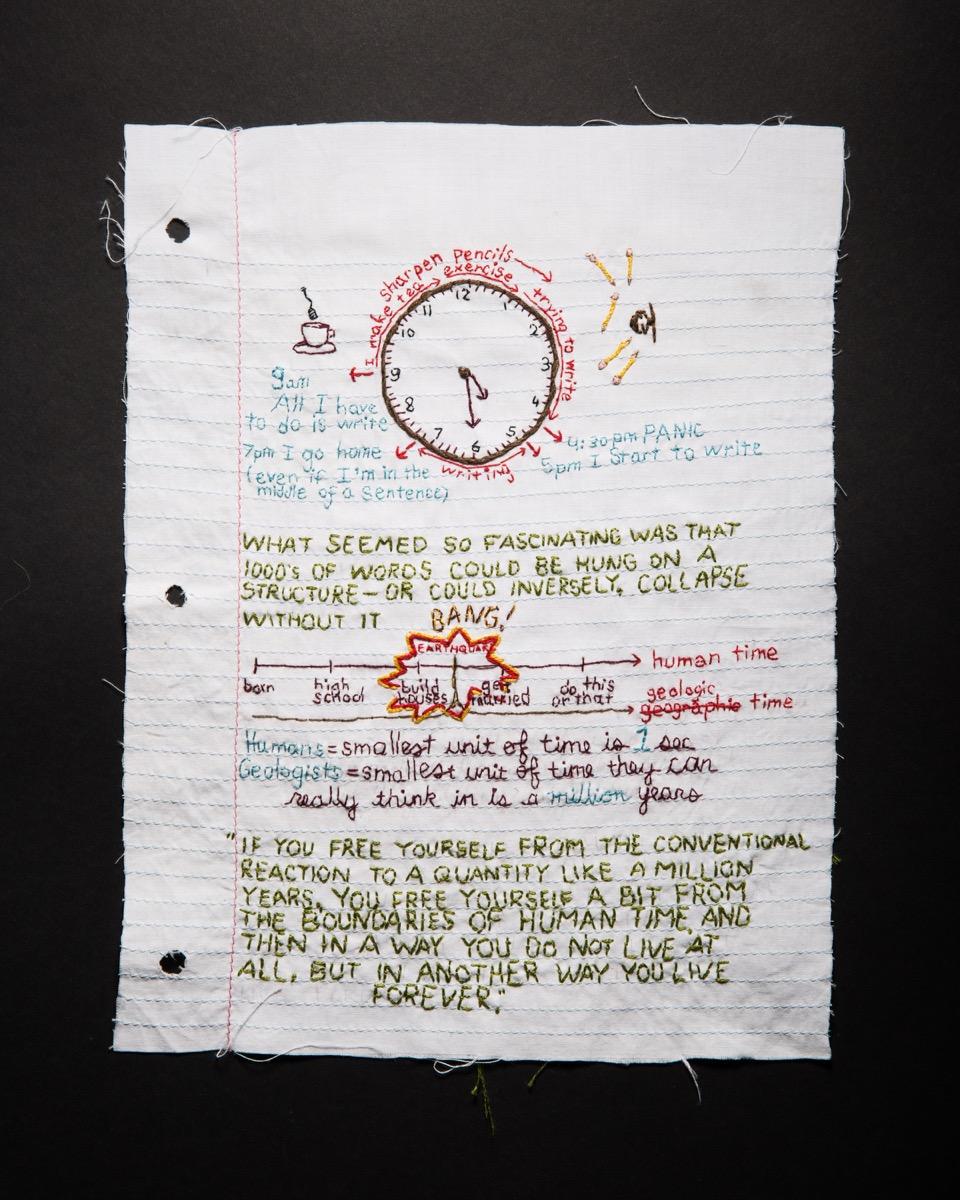 I make sharpen Pencils
tea
exercise
trying to write
12
11
10
9
8
7
6
5
4
3
2
1
writing
9am
All I have
to do is write
7pm I go home
(even if I'm in the
middle of a sentence)
4:30pm PANIC
5pm I start to write
WHAT SEEMED SO FASCINATING WAS THAT
1000's OF WORDS COULD BE HUNG ON A
STRUCTURE—OR COULD INVERSELY, COLLAPSE
WITHOUT IT
BANG!
EARTHQUAKE
human time
born
high
school
build
houses
get
married
do this
or that
geologic
geographic time
Humans = smallest unit of time is 1 sec
Geologists = smallest unit of time they can
really think in is a million years
"IF YOU FREE YOURSELF FROM THE CONVENTIONAL
REACTION TO A QUANTITY LIKE A MILLION
YEARS, YOU FREE YOURSELF A BIT FROM
THE BOUNDARIES OF HUMAN TIME. AND
THEN IN A WAY YOU DO NOT LIVE AT
ALL, BUT IN ANOTHER WAY YOU LIVE
FOREVER."